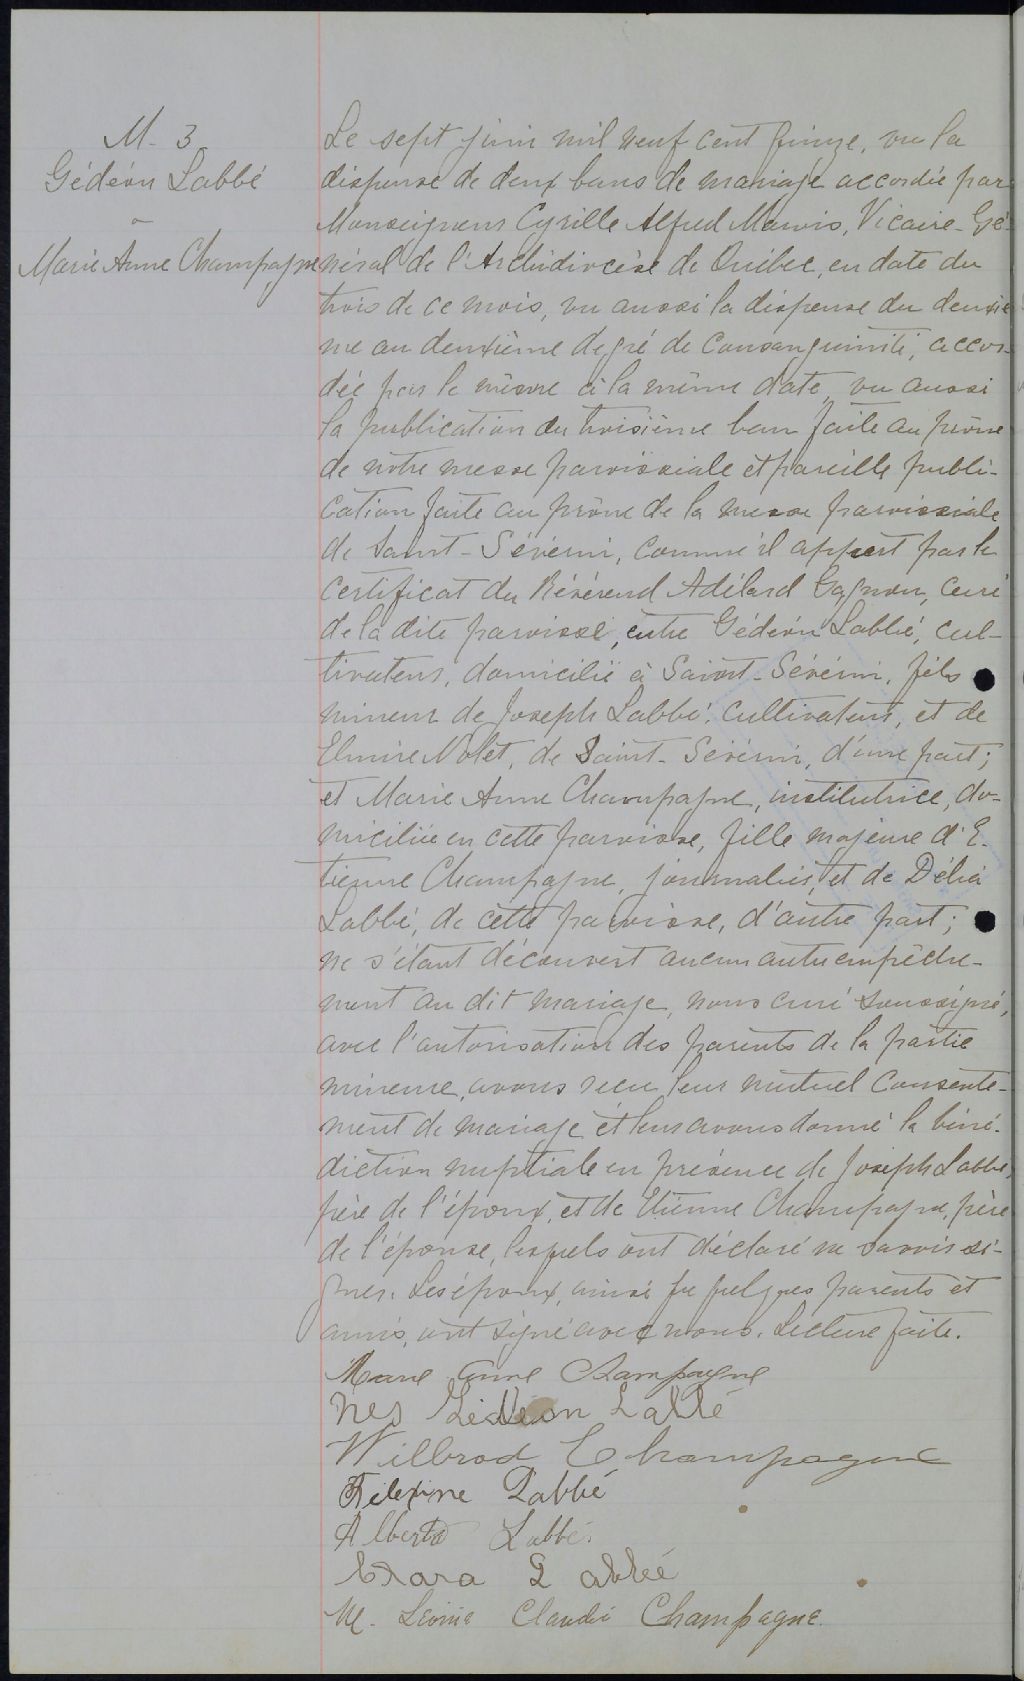 M. 3
Gédéon Labbé
&
Marie Anne Champagne
Le sept juin mil neuf cent quinze, vu la
dispense de deux bans de mariage accordée par
Monseigneur Cyrille Alfred Marois, Vicaire-Gé-
néral de l'Archidiocèse de Québec, en date du
trois de ce mois, vu aussi la dispense du deuxiè
me au deuxième degré de consanguinité, accor-
dée par le même à la même date, vu aussi
la publication du troisième ban faite au prône
de notre messe paroissiale et pareille publi-
cation faite au prône de la messe paroissiale
de Saint-Séverin, comme il appert par le
certificat du Révérend Adélard Gagnon, curé
de la dite paroisse, entre Gédéon Labbé, cul-
tivateur, domicilié à Saint-Séverin, fils
mineur de Joseph Labbé, cultivateur, et de
Elmire Nolet, de Saint-Séverin, d'une part;
et Marie Anne Champagne, institutrice, do-
miciliée en cette paroisse, fille majeure d'E-
tienne Champagne, journalier, et de Délia
Labbé, de cette paroisse, d'autre part;
ne s'étant découvert aucun autre empêche-
ment au dit mariage, nous curé soussigné,
avec l'autorisation des parents de la partie
mineure, avons reçu leur mutuel consente-
ment de mariage et leur avons donné la béné-
diction nuptiale en présence de Joseph Labbé,
père de l'époux, et de Etienne Champagne, père
de l'épouse, lesquels ont déclaré ne savoir si-
gner. Les époux, ainsi que quelques parents et
amis, ont signé avec nous. Lecture faite.
Marie Anne Champagne
Gédéon Labbé
Wilbrod Champagne
Labbé
Alberta Labbé
Exara Labbé
M. Léonie Claudi Champagne